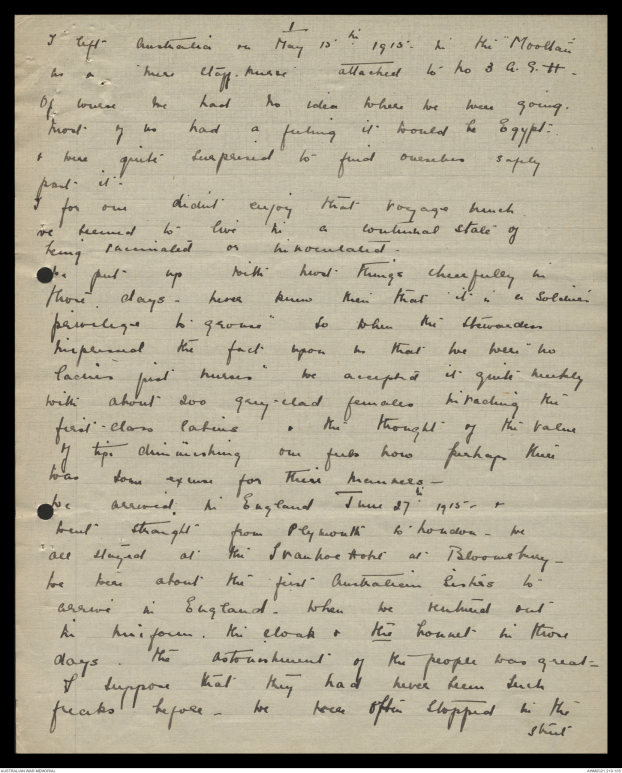 1
I left Australia on May 15th 1915 - in the "Mooltan"
as a "mere Staff-nurse" attached to No 3 A.G.H -
Of course we had no idea where we were going.
Most of us had a feeling it would be Egypt -
& were quite surprised to find ourselves safely
past it -
I for one didn't enjoy that voyage much.
we seemed to live in a continual state of
being vaccinated or innoculated -
We put up with most things cheerfully in
those days - never knew then that "it is a Soldier's
privilege to grouse" So when the Stewardess
impressed the fact upon us that we were "no
ladies just nurses" we accepted it quite meekly
with about 200 grey-clad females invading the
first-class cabins & the thought of the value
of tips diminishing one feels now perhaps there
was some excuse for their manners -
We arrived in England June 27th 1915 - &
went straight from Plymouth to London - we
all stayed at the Ivanhoe Hotel at Bloomsbury -
We were about the first Australian Sisters to
arrive in England - When we ventured out
in uniform. the cloak & the bonnet in those
days. the astonishment of the people was great -
I suppose that they had never seen such
freaks before - We were often stopped in the
street
AUSTRALIAN WAR MEMORIAL